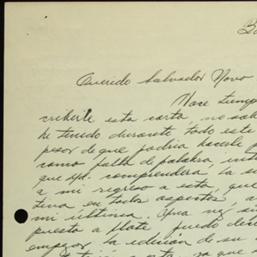 Querido Salvador Novo
Hace tiempo
cribirle esta carta, no sa
he tenido durante todo este
pesar de que podría hacerle p
como falta de palabra,
que Ud. comprenderá la
a mi regreso a esta, que
tina en todos aspectos, a
mi última. Una vez
puesta a flote, puedo
empezar la edición de su